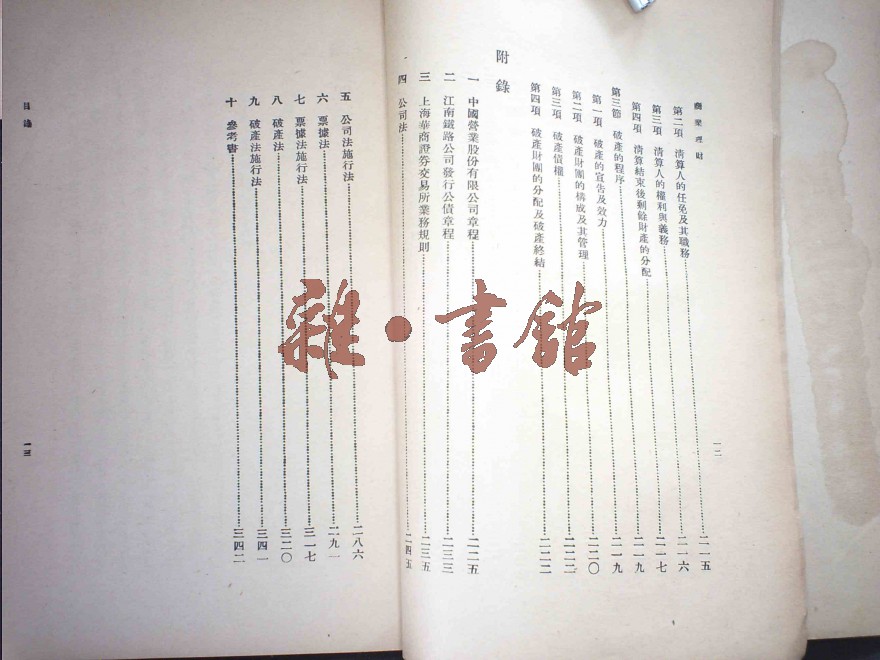 商業理財
一二
第二項 清算人的任免及其職務……二一五
第三項 清算人的權利與義務……二一六
第四項 清算結束後剩餘財產的分配……二一七
第三節 破產的程序……二一九
第一項 破產的宣告及效力……二一九
第二項 破產財團的構成及其管理……二二〇
第三項 破產債權……二二二
第四項 破產財團的分配及破產終結……二二二
附錄
一 中國營業股份有限公司章程……二二五
二 江南鐵路公司發行公債章程……二三三
三 上海華商證券交易所業務規則……二三五
四 公司法……二四五
五 公司法施行法……二八六
六 票據法……二九一
七 票據法施行法……三一七
八 破產法……三二〇
九 破產法施行法……三四一
十 參考書……三四二
目錄
一三
雜·書館